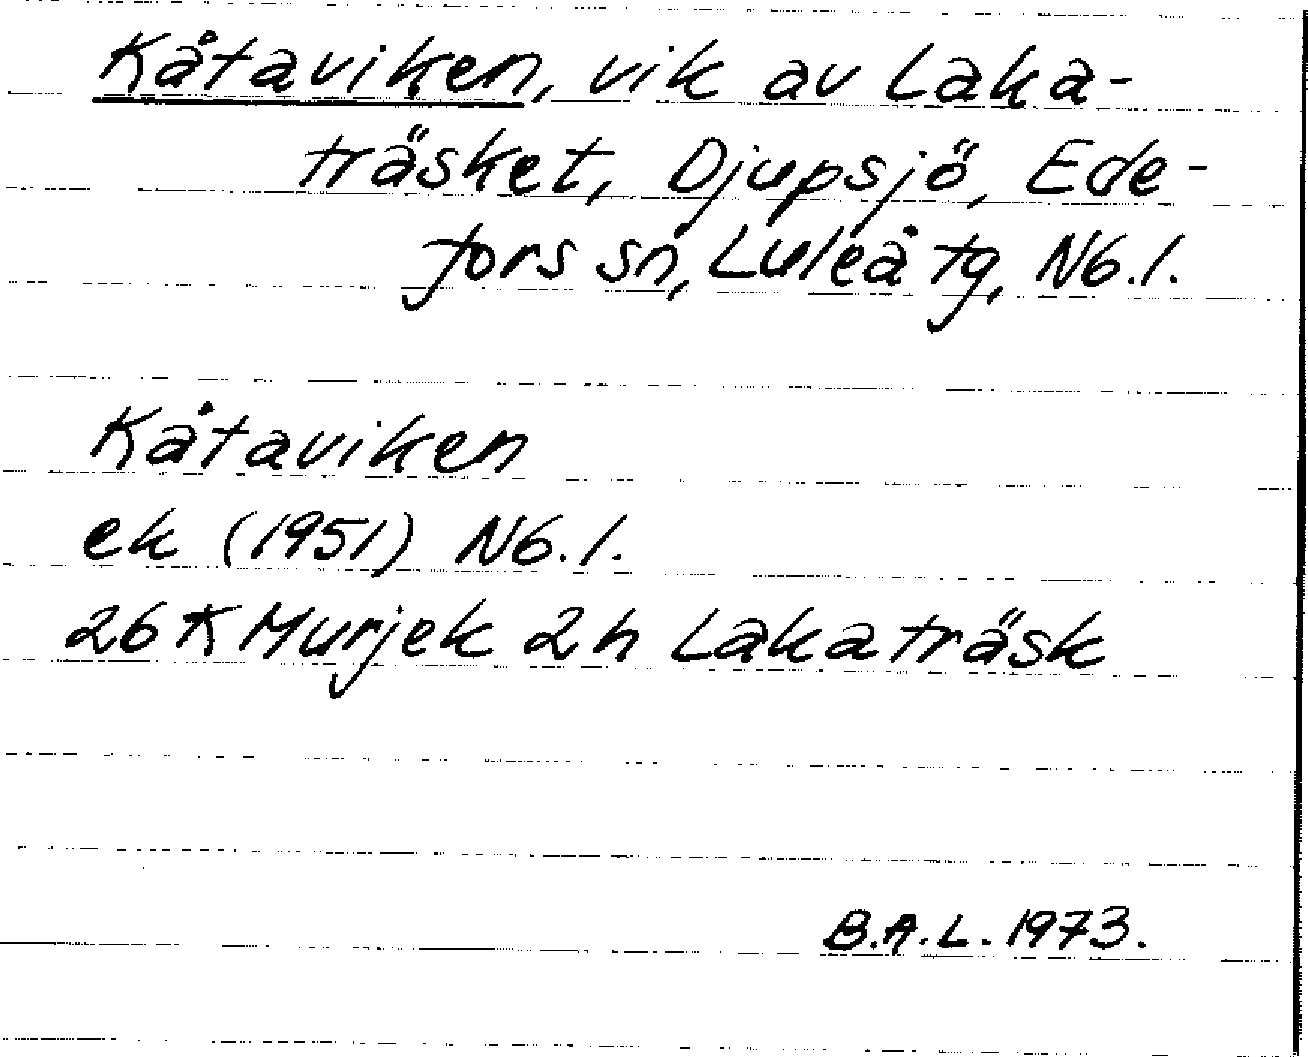 Kåtaviken, vik av Laka-
träsket, Djupsjö, Ede-
fors sn, Luleå tg, N6.l.
Kåtaviken
ek (1951) N6.l.
26 K Murjek 2h Lakaträsk
B.A.L. 1973.